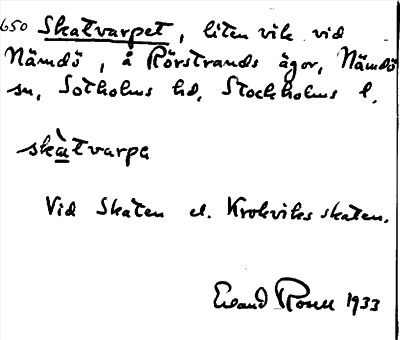 650 Skatvarpet, liten vik vid
Nämdö, å Rörstrands ägor, Nämdö
sn, Sotholms hd, Stockholms l.
skàtvarpa
Vid Skaten el. Krokviksskaten.
Evand Rosell 1933